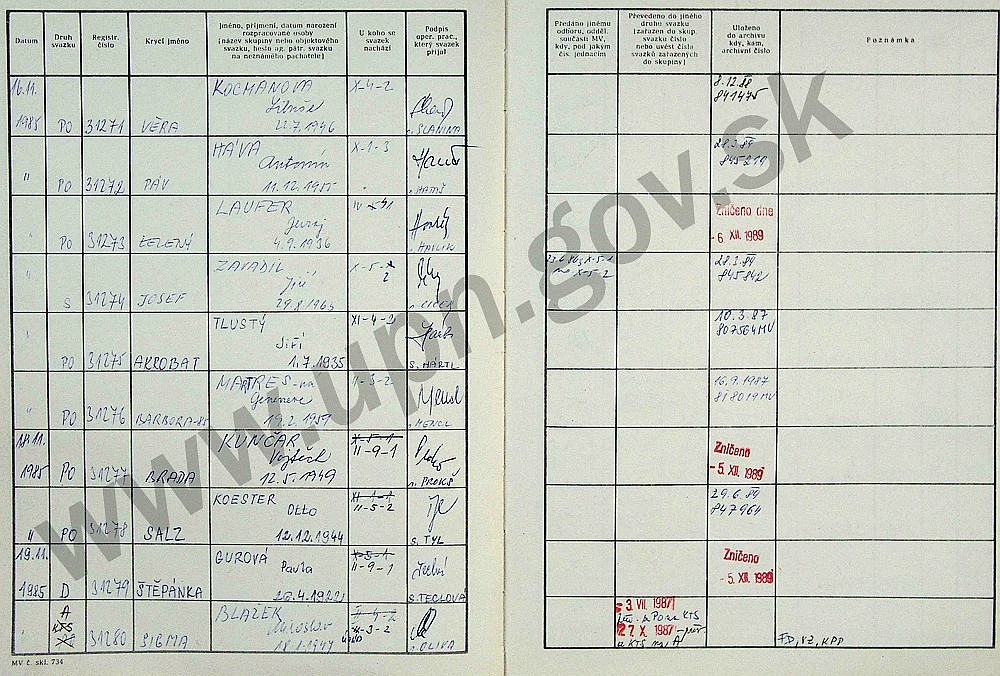 Datum
Druh svazku
Registr. číslo
Krycí jméno
Jméno, příjmení, datum narození
rozpracované osoby
(název skupiny nebo objektového
svazku, heslo ag. pátr. svazku
na neznámého pachatele)
U koho se
svazek
nachází
Podpis
oper. prac.,
který svazek
přijal
Předáno jinému
odboru, odděl.
součásti MV,
kdy, pod jakým
čís. jednacím
Převedeno do jiného
druhu svazku
(zařazen do skup.
svazku číslo
nebo uvést čísla
svazků zařazených
do skupiny)
Uloženo
do archivu
kdy, kam,
archivní číslo
Poznámka
16.11.
1985 PO 31271 VĚRA
KOCMANOVA
22.7.1946
X-4-2
SLANINA
8.12.88
841475
" PO 31272 PÁV
HÁVA
Antonín
11.12.1955
X-1-3
28.3.89
845219
" PO 31273 ZELENÝ
LAUFER
Juraj
4.9.1936
HAVLIK
Zničeno dne
- 6. XII. 1989
" S 31274 JOSEF
ZAVADIL
Jiří
X-5-2
28.3.89
845842
" PO 31275 AKROBAT
TLUSTÝ
Jiří
1.7.1935
XI-4-2
S. HÁRTL
10.3.87
807564 MV
" PO 31276 BARBORA-85
19.2.1959
II-3-2
16.9.1987
818019 MV
18.11.
1985 PO 31277 BRADA
KUNČAR
Vojtěch
12.5.1949
X-5-1
II-9-1
PROKŠ
Zničeno
- 5. XII. 1989
" PO 31278 SALZ
KOESTER
Otto
12.12.1944
XI-1-1
II-5-2
S. TYL
29.6.89
847964
19.11.
1985 D 31279 ŠTĚPÁNKA
GUROVÁ
Pavla
26.4.1922
X-5-1
II-9-1
S. TECLOVÁ
Zničeno
- 5. XII. 1989
A
KTS
" PO 31280 SIGMA
BLAŽEK
Miroslav
18.1.1947
II-3-2
OLIVA
- 3. VII. 1987
KTS
27. X. 1987
KTS na A
FD, VZ, KPP
MV č. skl. 734
www.upn.gov.sk